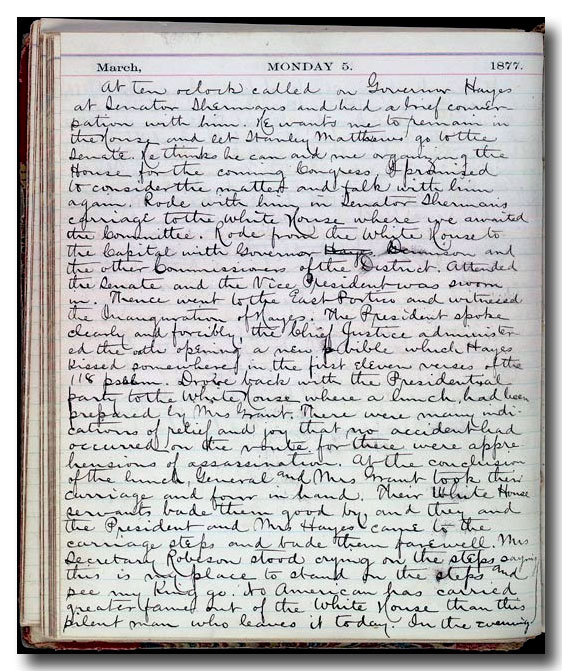 March, MONDAY 5. 1877.
At ten oclock called on Governor Hayes
at Senator Shermans and had a brief conver-
sation with him. He wants me to remain in
the House and let Stanley Matthews go to the
Senate. He thinks he can aid me organizing the
House for the coming Congress, I promised
to consider the matter and talk with him
again. Rode with him in Senator Shermans
carriage to the White House where we awaited
the Committee. Rode from the White House to
the Capitol with Governor Hays Dennison and
the other Commissioners of the District. Attended
the Senate and the Vice President was sworn
in. Thence went to the East Portico and witnessed
the Inauguration of Hayes. The President spoke
clearly and forcibly, the Chief Justice administer-
ed the oath opening a new bible which Hayes
kissed somewhere in the first eleven verses of the
118 psalm. Drove back with the Presidential
party to the White House where a lunch had been
prepared by Mrs Grant. There were many indi-
cations of relief and joy that no accident had
occurred on the route for there were appre-
hensions of assassination. At the conclusion
of the lunch, General and Mrs Grant took their
carriage and four in hand. Their White House
servants bade them good by and they and
the President and Mrs Hayes came to the
carriage steps and bade them farewell. Mrs
Secretary Robeson stood crying on the steps saying
this is my place to stand on the steps and
see my King go. No American has carried
greater fame out of the White House than this
silent man who leaves it today. In the evening